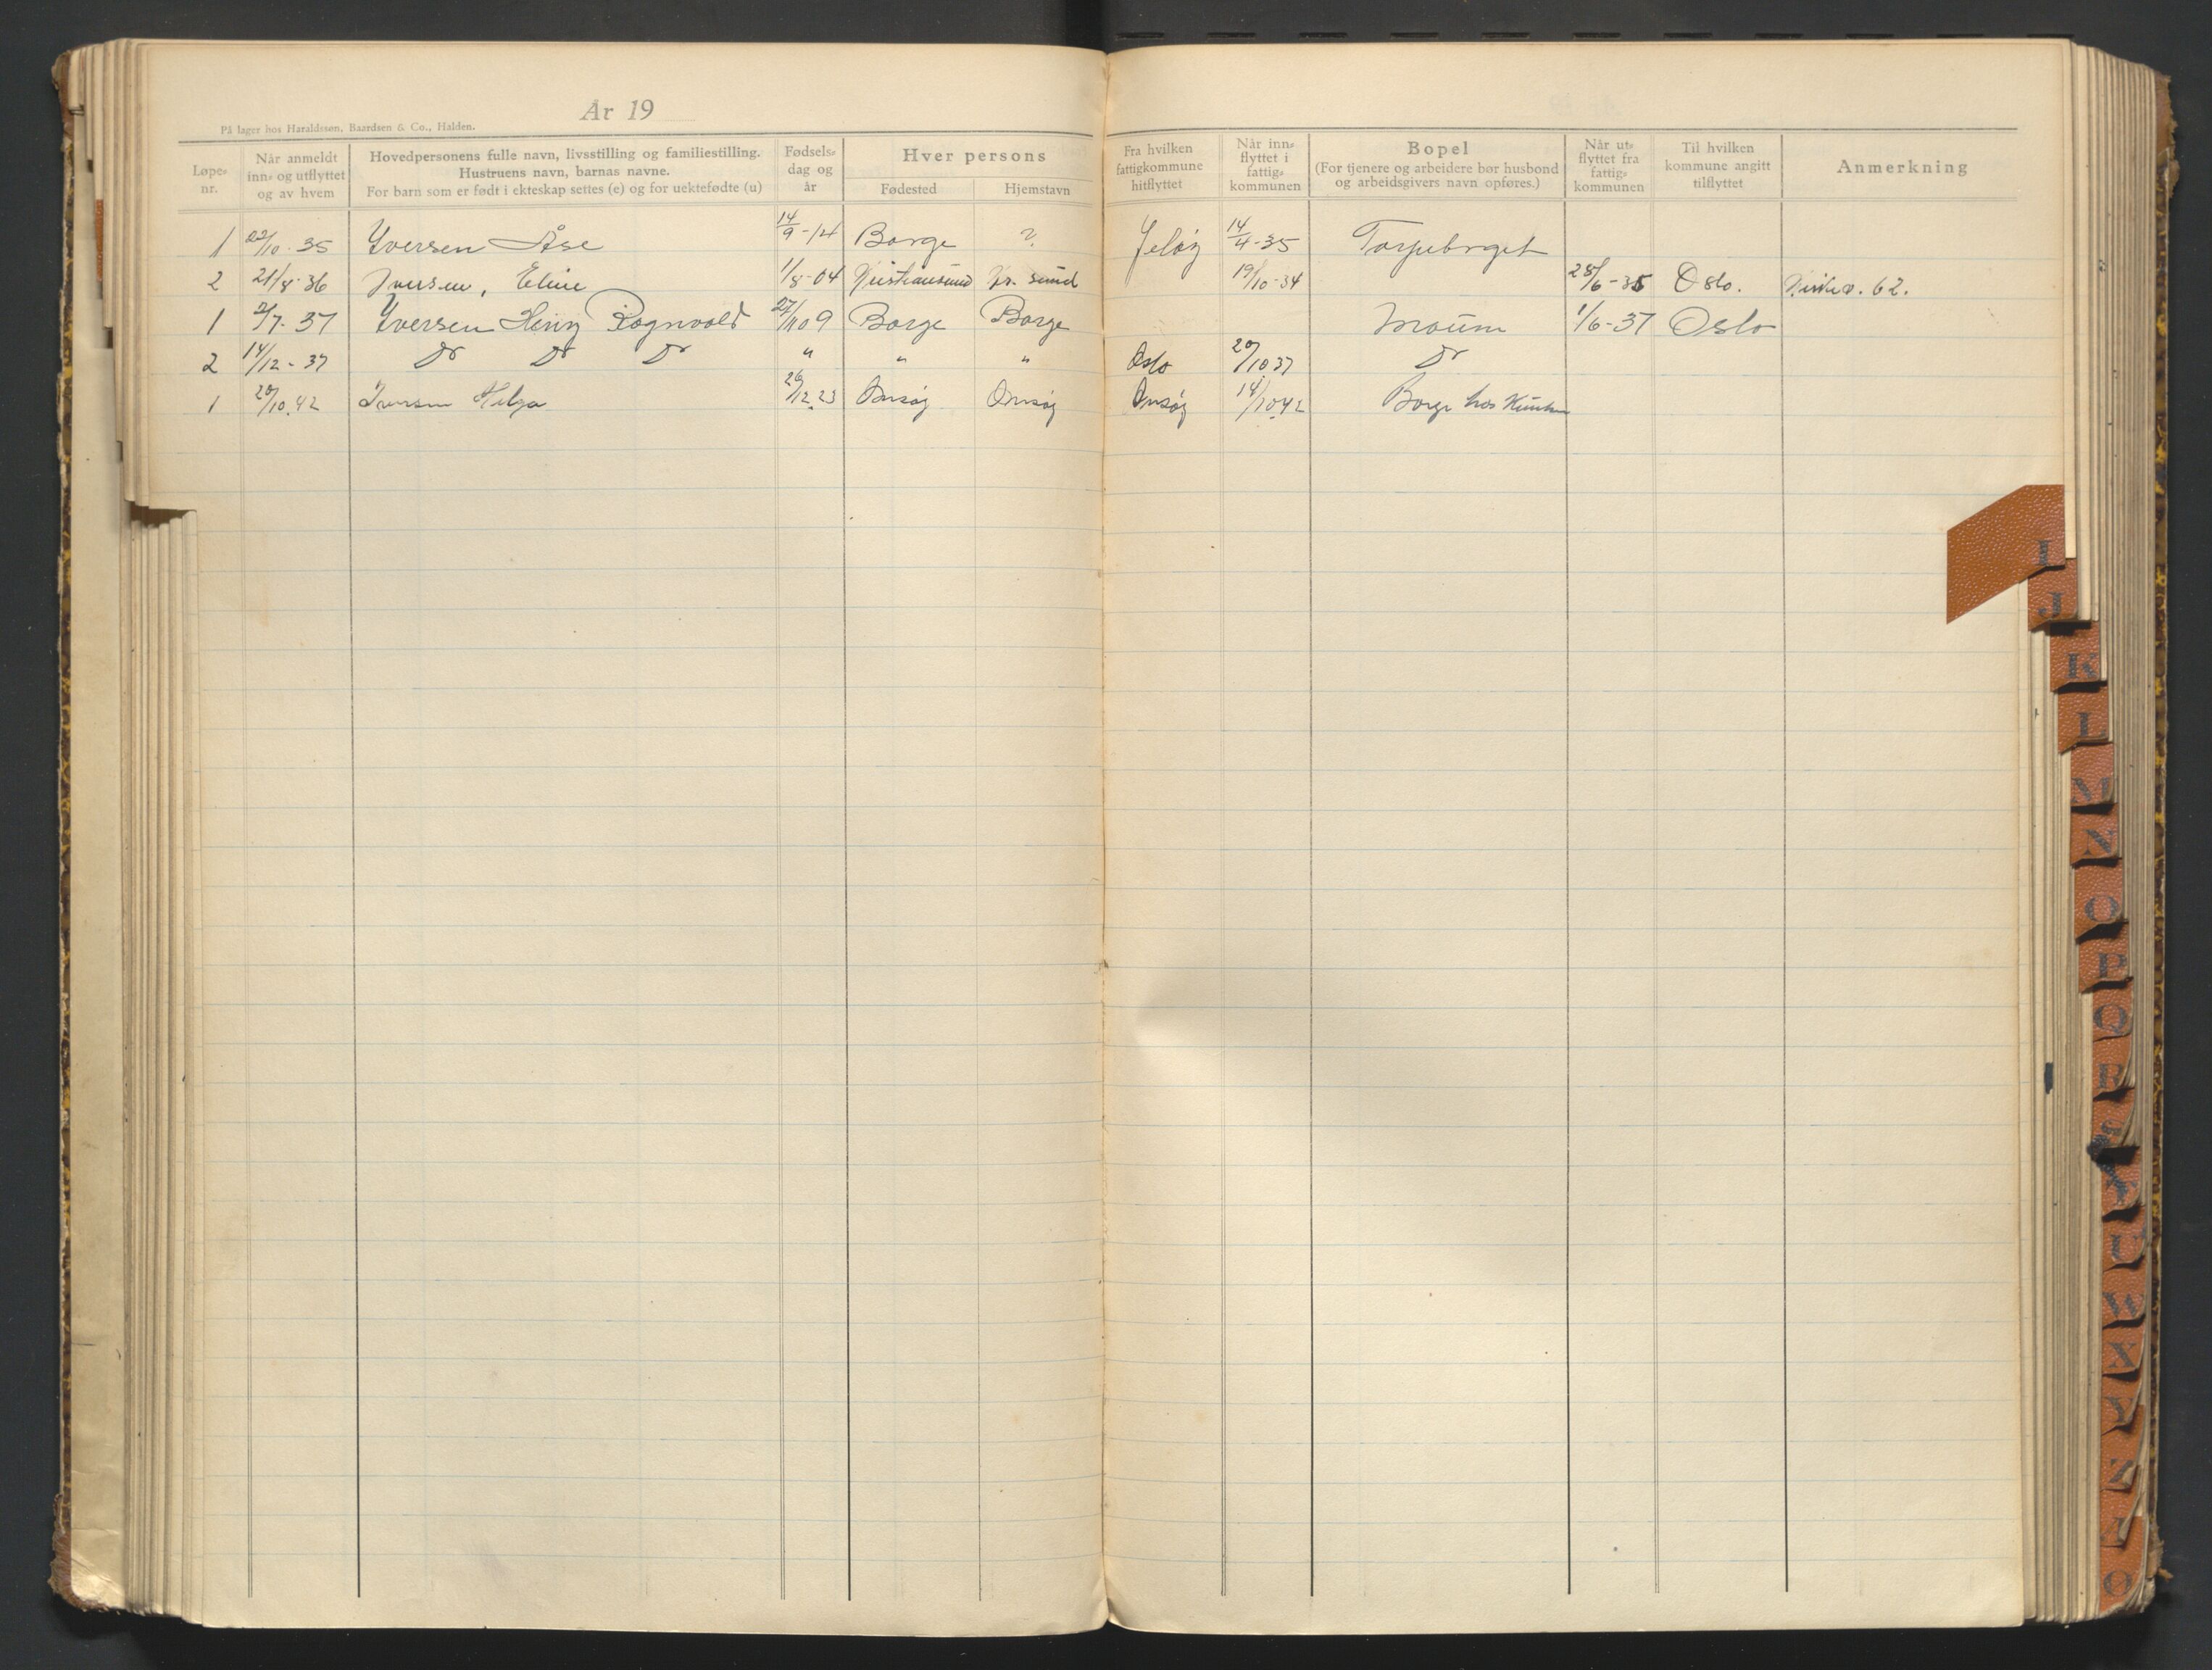 År 19
På lager hos Haraldssen, Baardsen & Co., Halden.
Løpe-nr.
Når anmeldt inn- og utflyttet og av hvem
Hovedpersonens fulle navn, livsstilling og familiestilling.
Hustruens navn, barnas navne.
For barn som er født i ekteskap settes (e) og for uektefødte (u)
Fødsels-dag og år
Hver persons
Fødested
Hjemstavn
Fra hvilken fattigkommune hitflyttet
Når inn-flyttet i fattig-kommunen
Bopel
(For tjenere og arbeidere bør husbond og arbeidsgivers navn opføres.)
Når ut-flyttet fra fattig-kommunen
Til hvilken kommune angitt tilflyttet
Anmerkning
1 22/10-35 Iversen Åse 14/9-14 Borge ? Jeløy 14/4-35 Torpeberget
2 21/8-36 Iversen, Eline 1/8-04 Kristiansund Kr. sund 19/10-34 28/6-35 Oslo. 62.
1 2/7-37 Iversen Henry Ragnvald 27/11 09 Borge Borge Moum 1/6-37 Oslo
2 14/12-37 Do Do Do " " " Oslo 20/10 37 Do
1 20/10.42 Iversen Helga 26/12.23 Onsøy Onsøy Onsøy 14/10.42 Borge hos
I
J
K
L
M
N
O
P
Q
R
S
T
U
W
X
Y
Z
Æ
Ø